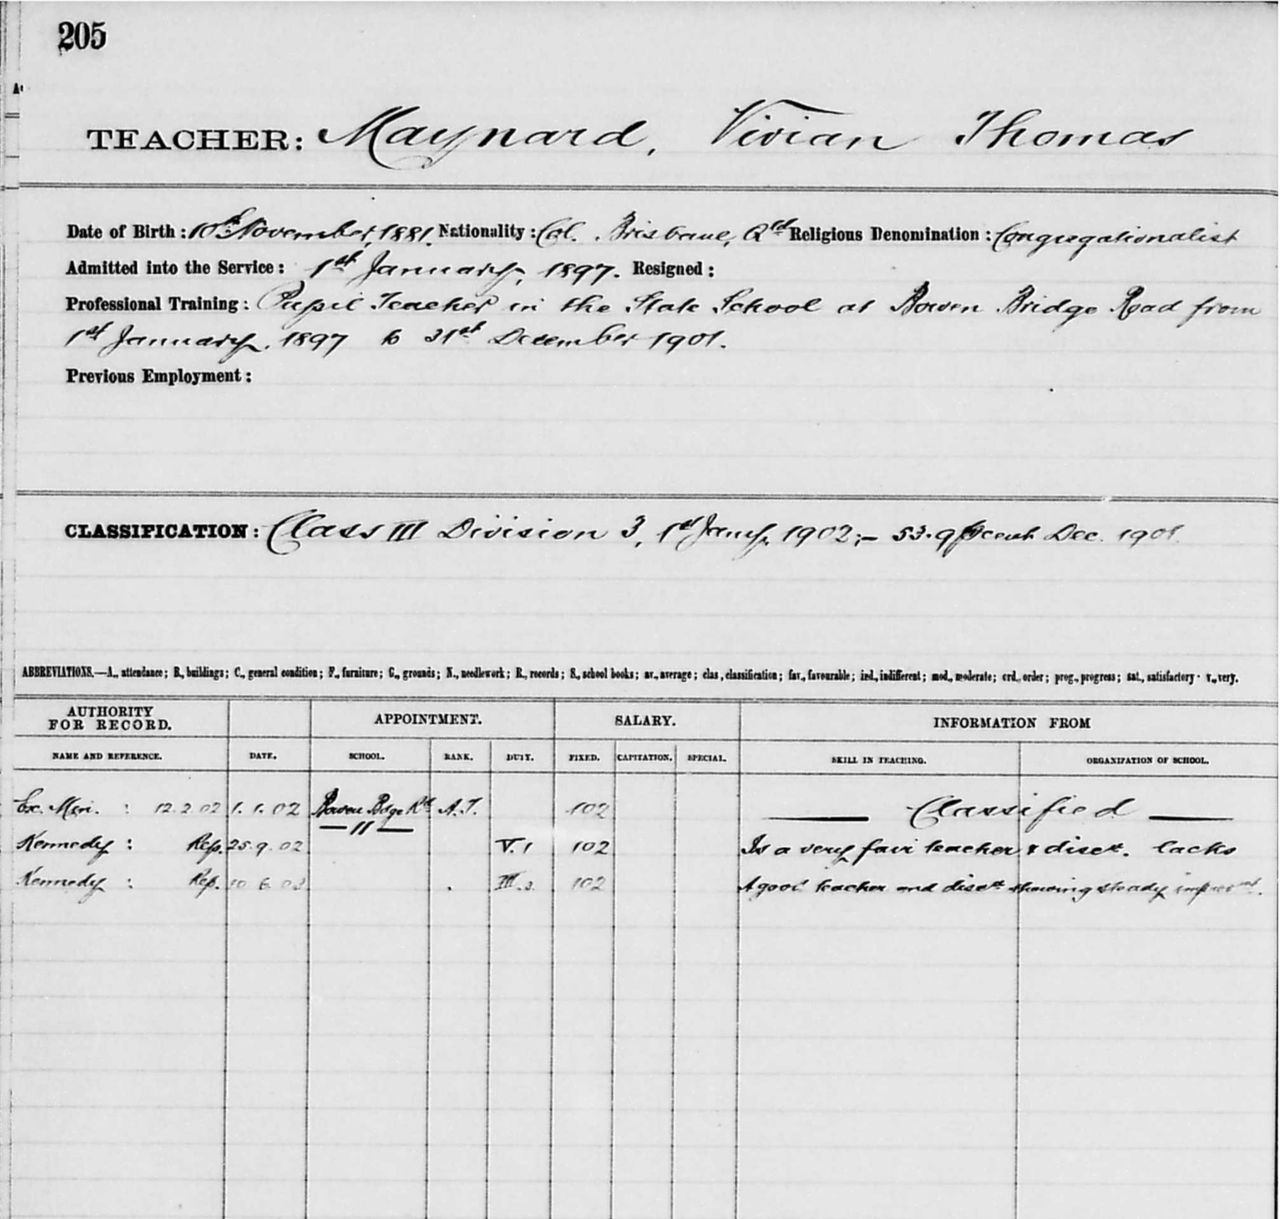 205
TEACHER: Maynard, Vivian Thomas
Date of Birth: 10th November, 1881. Nationality: Col. Brisbane, Qld Religious Denomination: Congregationalist
Admitted into the Service: 1st January, 1897. Resigned:
Professional Training: Pupil Teacher in the State School at Bowen Bridge Road from
1st January, 1897 to 31st December 1901.
Previous Employment:
CLASSIFICATION: Class III Division 3, 1st Jany, 1902;- 53.9 pcent Dec. 1901.
ABBREVIATIONS.—A., attendance; B., buildings; C., general condition; F., furniture; G., grounds; N., needlework; R., records; S., school books; av., average; clas., classification; fav., favourable; ind., indifferent; mod., moderate; ord., order; prog., progress; sat., satisfactory; v., very.
AUTHORITY FOR RECORD. APPOINTMENT. SALARY. INFORMATION FROM
NAME AND REFERENCE. DATE. SCHOOL. RANK. DUTY. FIXED. CAPITATION. SPECIAL. SKILL IN TEACHING. ORGANIZATION OF SCHOOL.
Ex. Min. : 12.2.02 1.1.02 Bowen Bdge Rd A.T. 102 Classified
Kennedy : Rep. 25.9.02 — " — V.1 102 Is a very fair teacher & discn. lacks
Kennedy : Rep. 10.6.03 III.2 102 A good teacher and discn showing steady improvt.